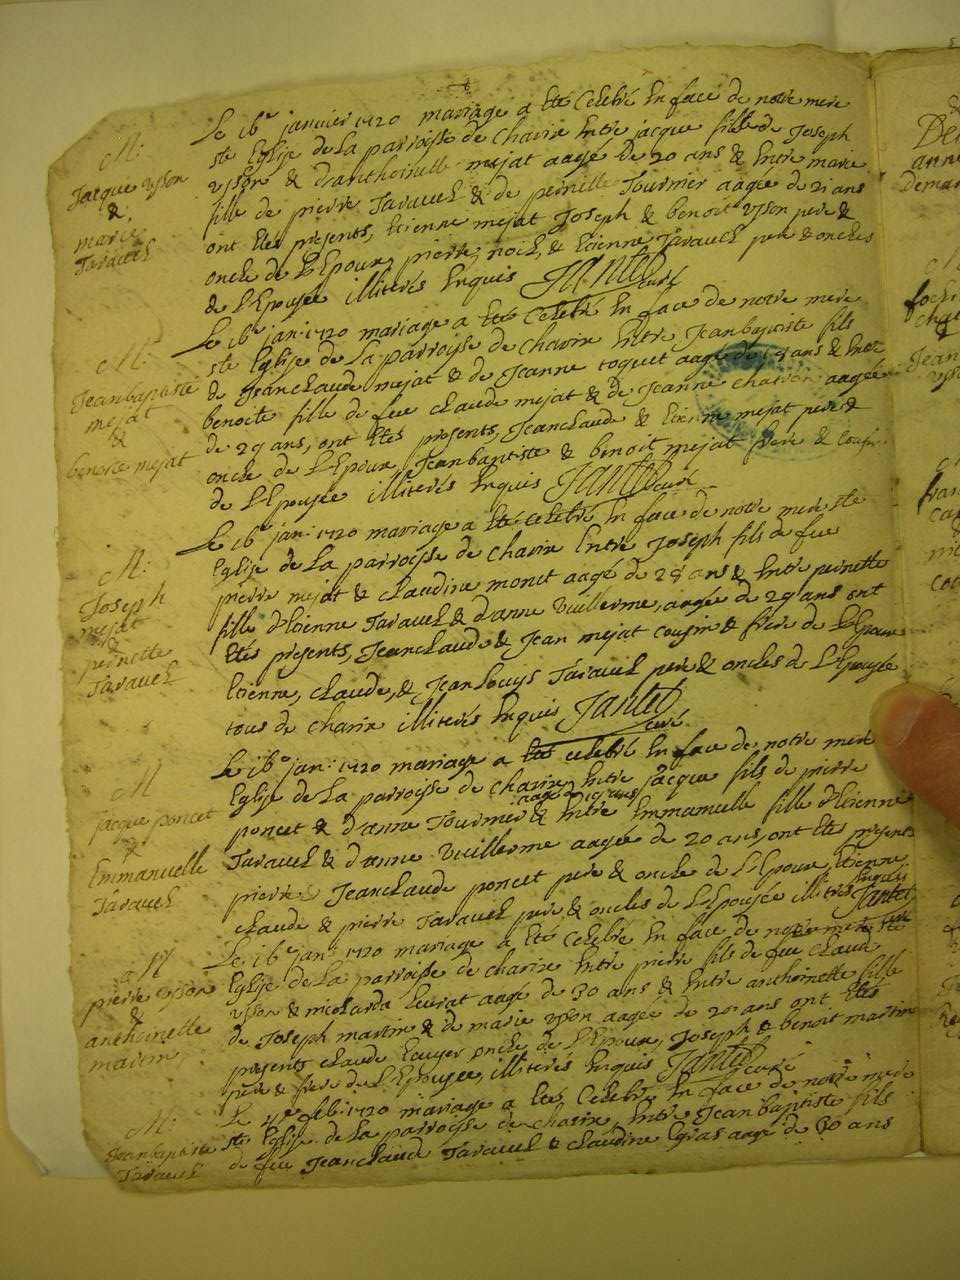 M:
Jacque ysson
&
marie
Taravel
Le 16e janvier 1720 mariage a été Celebré En face de notre mere
ste Eglise de La parroisse de Charix Entre jacque fils de Joseph
ysson & d'anthoinette mejat aagé de 20 ans & Entre marie
fille de pierre Taravel & de pernette Tournier aagée de 21 ans
ont étés presents, Etienne mejat Joseph & benoit ysson pere &
oncle de L'Epoux, pierre, & Etienne Taravel pere & oncles
de L'Epousée illiterés Enquis Jantet curé
M:
Jeanbaptiste
mejat
&
benoite mejat
Le 16e jan: 1720 mariage a été Celebré En face de notre mere
ste Eglise de La parroisse de Charix Entre Jeanbaptiste fils
de Jeanclaude mejat & de Jeanne toquet aagé de ans & Entre
benoite fille de feu Claude mejat & de Jeanne chatron aagée
de 29 ans, ont étés presents, Jeanclaude & Etienne mejat pere &
oncle de L'Epoux Jeanbaptiste & benoit mejat frere & cousin
de L'Epousée illiterés Enquis Jantet curé
M:
Joseph
mejat
&
pernette
Taravel
Le 16e jan: 1720 mariage a été celebré En face de notre mere ste
Eglise de La parroisse de Charix Entre Joseph fils de feu
pierre mejat & claudine monet aagé de 28 ans & Entre pernette
fille d'Etienne Taravel & d'anne Vuillerme, aagée de 29 ans ont
étés presents, Jeanclaude & Jean mejat cousin & frere de L'Epoux
Etienne, claude, & Jean Louys Taravel pere & oncles de L'Epousée
tous de charix illiterés Enquis Jantet
curé
M
jacque poncet
&
Emmanuelle
Taravel
Le 16e jan: 1720 mariage a été celebré En face de notre mere
Eglise de La parroisse de charix Entre jacque fils de pierre
aagé de 19 ans
poncet & d'anne Tournier & Entre Emmanuelle fille d'Etienne
Taravel & d'anne Vuillerme aagée de 20 ans, ont étés presents
pierre Jeanclaude poncet pere & oncle de L'Epoux, Etienne
claude & pierre Taravel pere & oncles de L'Epousée illiterés Enquis
Jantet
curé
M
pierre ysson
&
anthoinette
martin
Le 16e jan: 1720 mariage a été Celebré En face de notre mere ste
Eglise de La parroisse de charix Entre pierre fils de feu claud
ysson & nicolarda aagé de 30 ans & Entre anthoinette fille
de Joseph martin & de marie ysson aagée de 20 ans ont étés
presents claude oncle de L'Epoux, Joseph & benoit martin
pere & frere de L'Epousée, illiterés Enquis Jantet curé
M:
Jeanbaptiste
Taravel
Le 4e feb: 1720 mariage a été Celebré En face de notre mere
ste Eglise de La parroisse de charix, Entre Jeanbaptiste fils
de feu Jeanclaud Taravel & claudine aagé de 30 ans